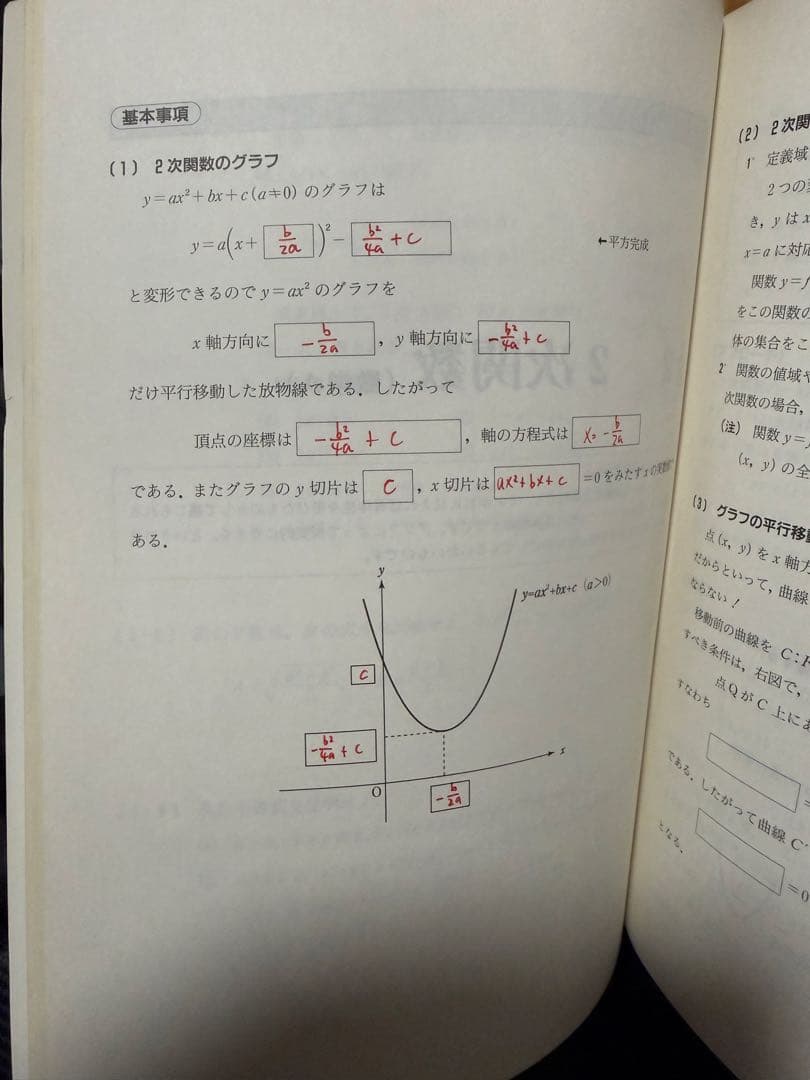 基本事項
(1) 2次関数のグラフ
y=ax²+bx+c(a≠0) のグラフは
y=a(x+ b/2a )²− b²/4a + c
←平方完成
と変形できるので y=ax² のグラフを
x 軸方向に −b/2a , y 軸方向に −b²/4a + c
だけ平行移動した放物線である. したがって
頂点の座標は −b²/4a + c , 軸の方程式は x= −b/2a
である. またグラフの y 切片は c , x 切片は ax²+bx+c =0をみたすxの実数
ある.
y
y=ax²+bx+c (a>0)
c
−b²/4a + c
x
O
−b/2a
(2) 2次関
1° 定義域
2つの
き, y は x
x=a に対応
関数 y=f
をこの関数の
体の集合をこ
2° 関数の値域や
次関数の場合,
(注) 関数 y=
(x, y) の全
(3) グラフの平行移
点(x, y) を x 軸方
だからといって, 曲線
ならない！
移動前の曲線を C:F
すべき条件は, 右図で,
点QがC 上にあ
すなわち
=
である. したがって曲線 C'
=0
となる.